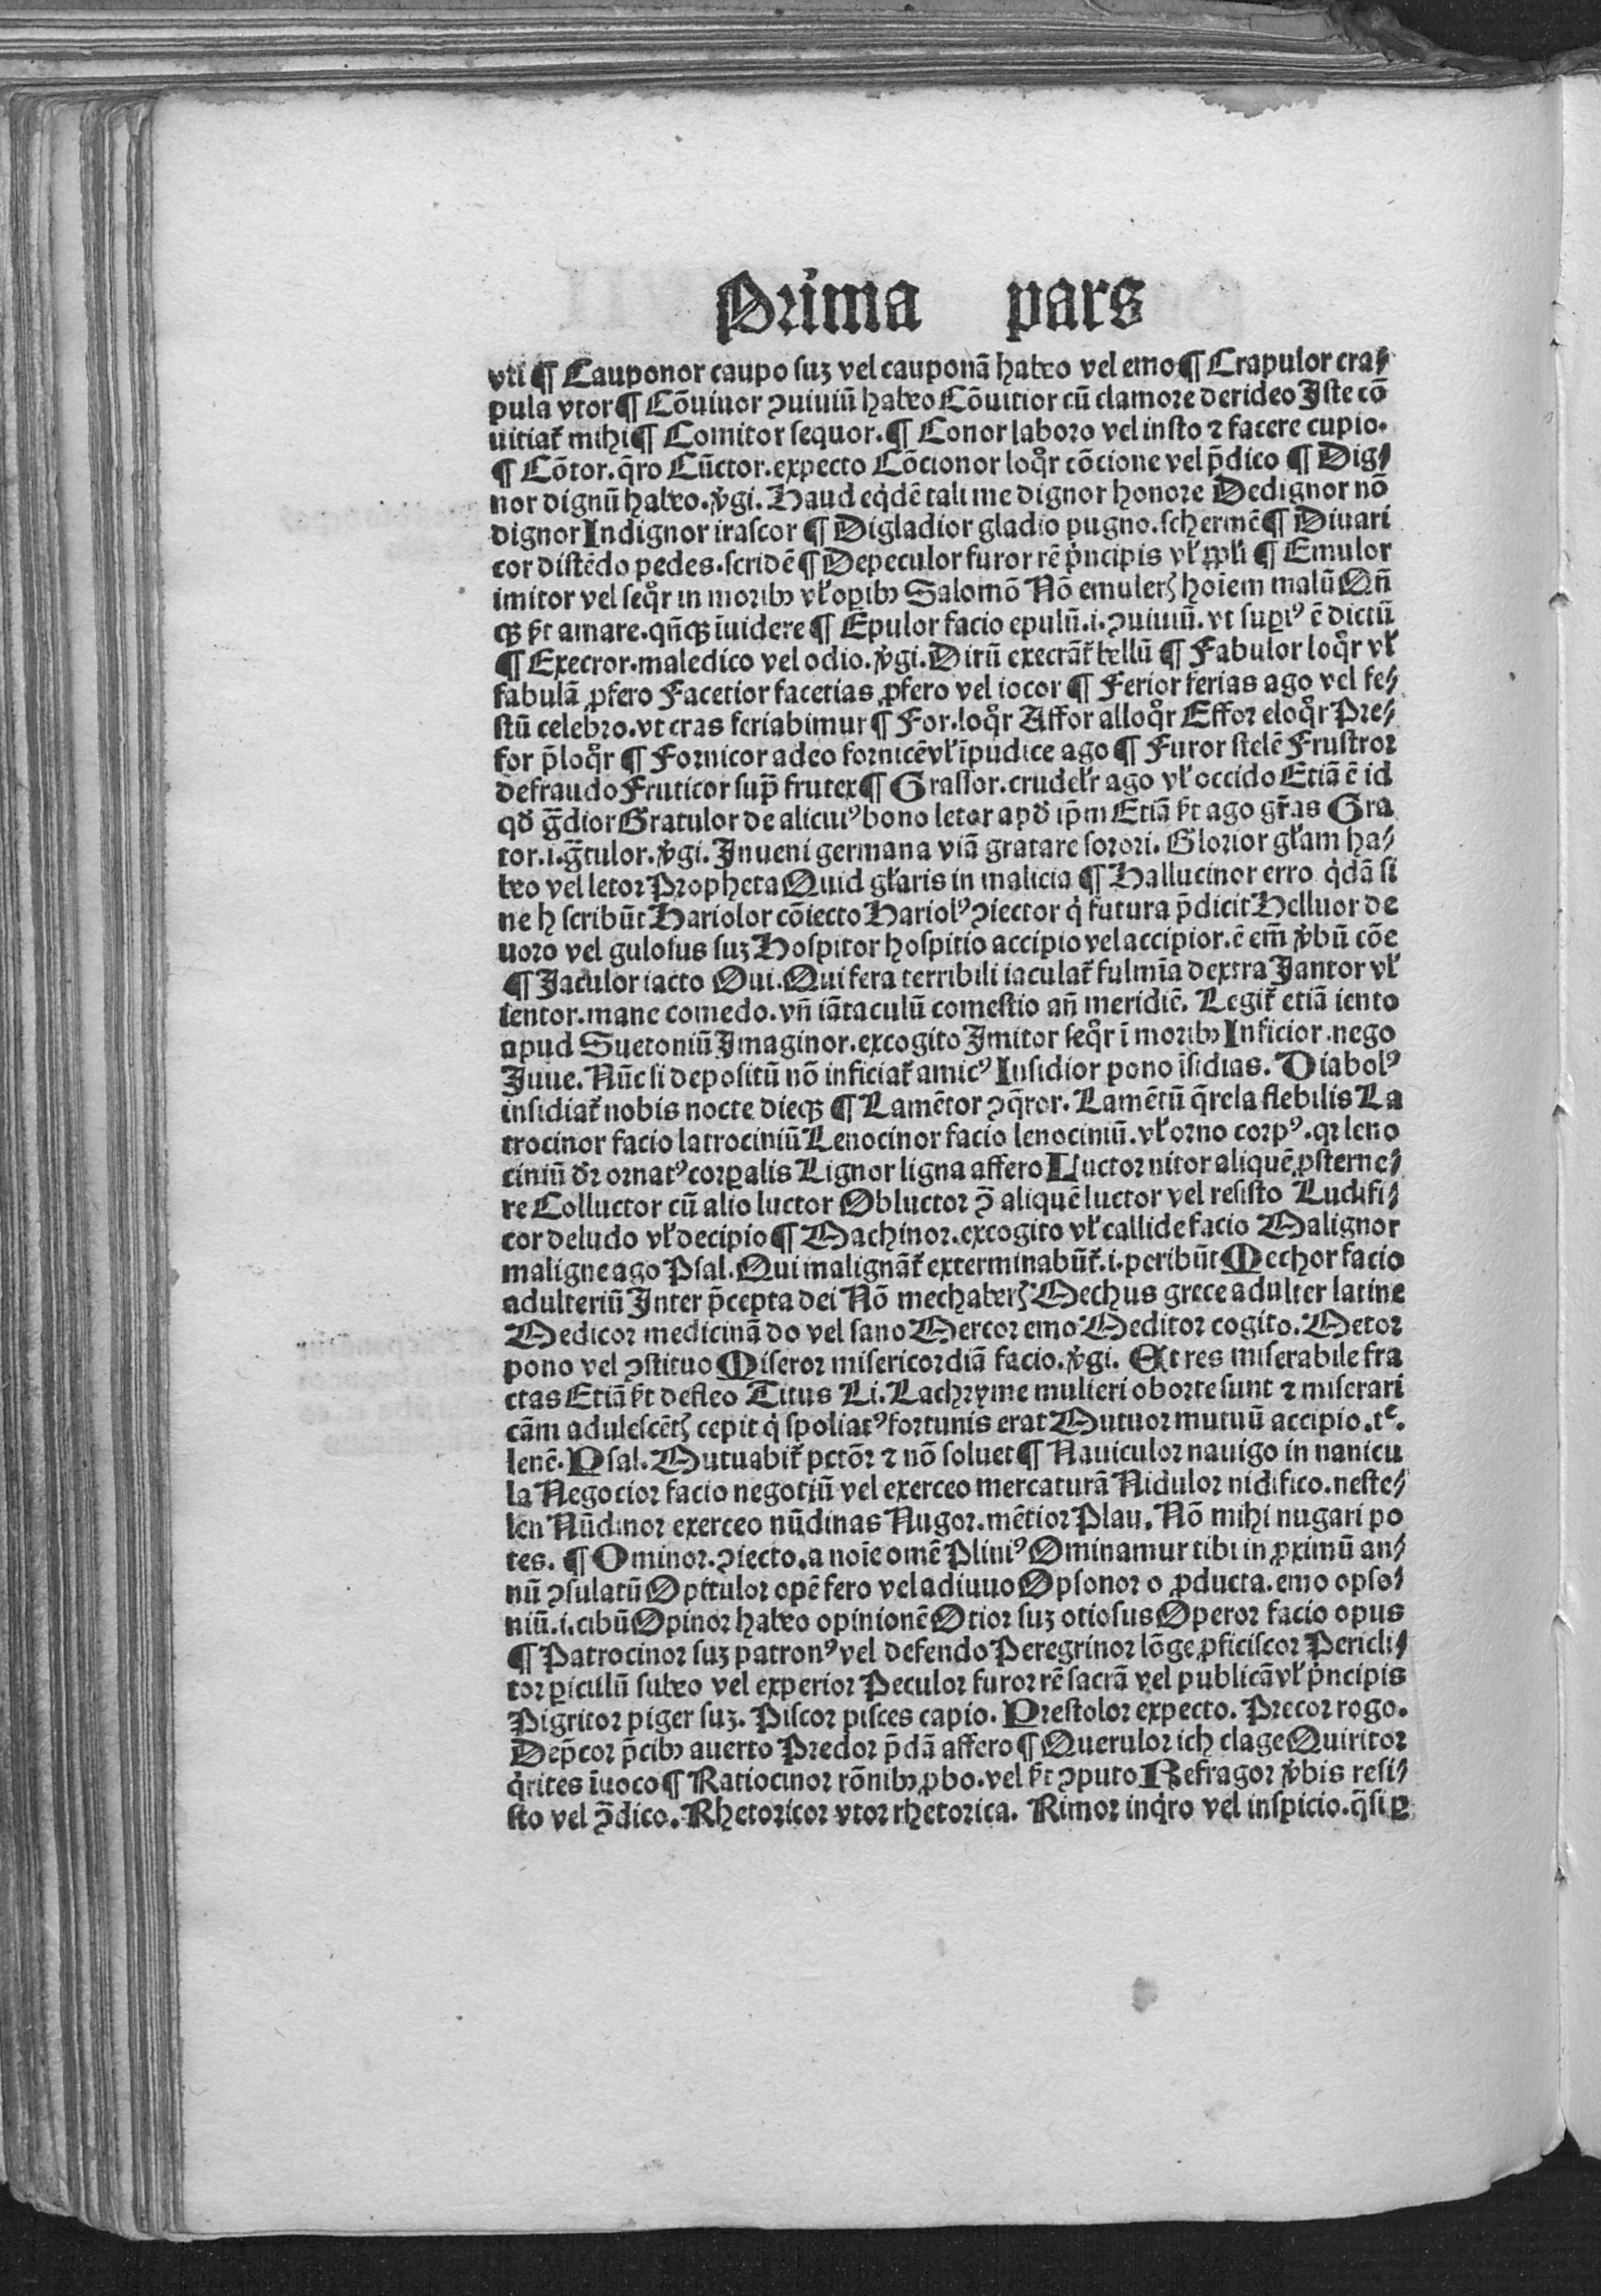 Prima pars
vti ¶ Cauponor caupo suꝫ vel cauponā habeo vel emo ¶ Crapulor cra⸗
pula vtor ¶ Cōuiuor ꝯuiuiū habeo Cōuitior cū clamore derideo Iste cō
uitiat᷑ mihi ¶ Comitor sequor. ¶ Conor laboro vel insto ⁊ facere cupio.
¶ Cōtor. q̄ro Cūctor. expecto Cōcionor loqͦr cōcione vel p̄dico ¶ Dig⸗
nor dignū habeo. v̓gi. Haud eqͥdē tali me dignor honore Dedignor nō
dignor Indignor irascor ¶ Digladior gladio pugno. schermē ¶ Diuari
cor distēdo pedes. scridē ¶ Depeculor furor rē pͥncipis vl̓ ppl̓i ¶ Emulor
imitor vel seqͦr in moribꝰ vl̓ oꝑibꝰ Salomō Nō emulerꝭ hoīem malū Qn̄
qꝫ st̓ amare. qn̄qꝫ īuidere ¶ Epulor facio epulū .i. ꝯuiuiū. vt supͥꝰ ē dictū
¶ Execror. maledico vel odio. v̓gi. Dirū execrāt᷑ bellū ¶ Fabulor loqͦr vl̓
fabulā ꝓfero Facetior facetias ꝓfero vel iocor ¶ Ferior ferias ago vel fe⸗
stū celebro. vt cras feriabimur ¶ For. loqͦr Affor alloqͦr Effor eloqͦr Pre⸗
for p̄loqͦr ¶ Fornicor adeo fornicē vl̓ īpudice ago ¶ Furor stelē Frustror
defraudo Fruticor sup̄ frutex ¶ Grassor. crudel̓r ago vl̓ occido Etiā ē id
qd̓ gᷓdior Gratulor de alicuiꝰ bono letor apd̓ ip̄m Etiā st̓ ago gr̄as Gra
tor. i. gᷓtulor. v̓gi. Inueni germana viā gratare sorori. Glorior gl̓am ha⸗
beo vel letor Propheta Quid gl̓aris in malicia ¶ Hallucinor erro qͥdā si
ne h scribūt Hariolor cōiecto Hariolꝰ ꝯiector qͥ futura p̄dicit Helluor de
uoro vel gulosus suꝫ Hospitor hospitio accipio vel accipior. ē em̄ v̓bū cōe
¶ Iaculor iacto Oui. Qui fera terribili iaculat᷑ fulmīa dextra Iantor vl̓
ientor. mane comedo. vn̄ iātaculū comestio an̄ meridiē. Legit᷑ etiā iento
apud Suetoniū Imaginor. excogito Imitor seqͦr ī moribꝰ Inficior. nego
Juue. Nūc si depositū nō inficiat᷑ amicꝰ Insidior pono īsidias. Diabolꝰ
insidiat᷑ nobis nocte dieqꝫ ¶ Lamētor ꝯq̄ror. Lamētū q̄rela flebilis La
trocinor facio latrociniū Lenocinor facio lenociniū. vl̓ orno corpꝰ. qꝛ leno
ciniū dr̄ ornatꝰ corꝑalis Lignor ligna affero Luctor nitor aliquē ꝓsterne⸗
re Colluctor cū alio luctor Obluctor ꝯ̄ aliquē luctor vel resisto Ludifi⸗
cor deludo vl̓ decipio ¶ Machinor. excogito vl̓ callide facio Malignor
maligne ago Psal. Qui malignāt᷑ exterminabūt᷑. i. peribūt Mechor facio
adulteriū Inter p̄cepta dei Nō mechaberꝭ Mechus grece adulter latine
Medicor medicinā do vel sano Mercor emo Meditor cogito. Metor
pono vel ꝯstituo Miseror misericordiā facio. v̓gi. Et res miserabile fra
ctas Etiā st̓ defleo Titus Li. Lachryme mulieri oborte sunt ⁊ miserari
cām adulescētꝭ cepit qͥ spoliatꝰ fortunis erat Mutuor mutuū accipio. tᶜ.
lenē. Psal. Mutuabit᷑ pctōr ⁊ nō soluet ¶ Nauiculor nauigo in nanicu
la Negocior facio negotiū vel exerceo mercaturā Nidulor nidifico. neste⸗
len Nūdinor exerceo nūdinas Nugor. mētior Plau. Nō mihi nugari po
tes. ¶ Ominor. ꝯiecto. a noīe omē Pliniꝰ Ominamur tibi in ꝓximū an⸗
nū ꝯsulatū Opitulor opē fero vel adiuuo Opsonor o ꝓducta. emo opso⸗
niū. i. cibū Opinor habeo opinionē Otior suꝫ otiosus Operor facio opus
¶ Patrocinor suꝫ patronꝰ vel defendo Peregrinor lōge ꝓficiscor Pericli⸗
tor ꝑiculū subeo vel experior Peculor furor rē sacrā vel publicā vl̓ pͥncipis
Pigritor piger suꝫ. Piscor pisces capio. Prestolor expecto. Precor rogo.
Dep̄cor p̄cibꝰ auerto Predor p̄dā affero ¶ Querulor ich clage Quiritor
qͥrites īuoco ¶ Ratiocinor rōnibꝰ ꝓbo. vel st̓ ꝯputo Refragor v̓bis resi⸗
sto vel ꝯ̄dico. Rhetoricor vtor rhetorica. Rimor inqͥro vel inspicio. q̄si ꝑ